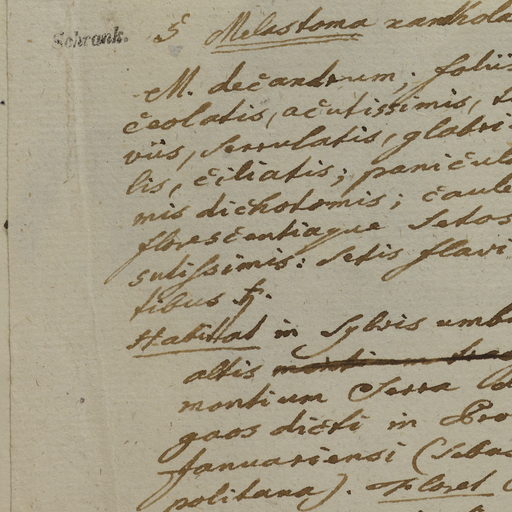 Schrank.
Melastoma xanthola
M. decandrum; foliis
ceolatis, acutissimis,
viis, serrulatis, glabri
lis, ciliatis; panicul
mis dichotomis; caule
florescentiaque setos
sutissimis: setis flavi
tibus ♄.
Habitat in sylvis umb
altis
montium Serra
gaos dicti in Pro
Januariensi (Seba
politana). Floret